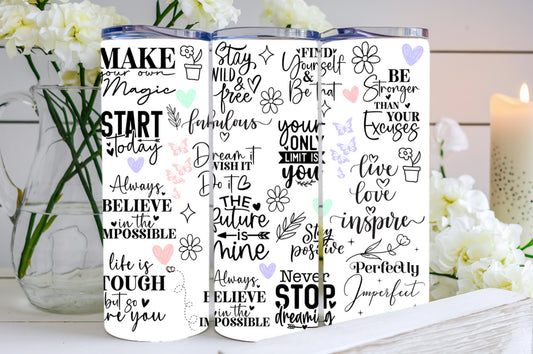 MAKE
your own
Magic
START
Today
Always
BELIEVE
in the
IMPOSSIBLE
life is
TOUGH
but so
are you
Stay
WILD
&
free
fabulous
Dream it
WISH IT
Do it
THE
Future
is
mine
Always
BELIEVE
in the
IMPOSSIBLE
FIND
Yourself
&
Be that
your
ONLY
LIMIT IS
you
Stay
positive
Never
STOP
dreaming
BE
Stronger
THAN
YOUR
Excuses
live
love
inspire
Perfectly
Imperfect